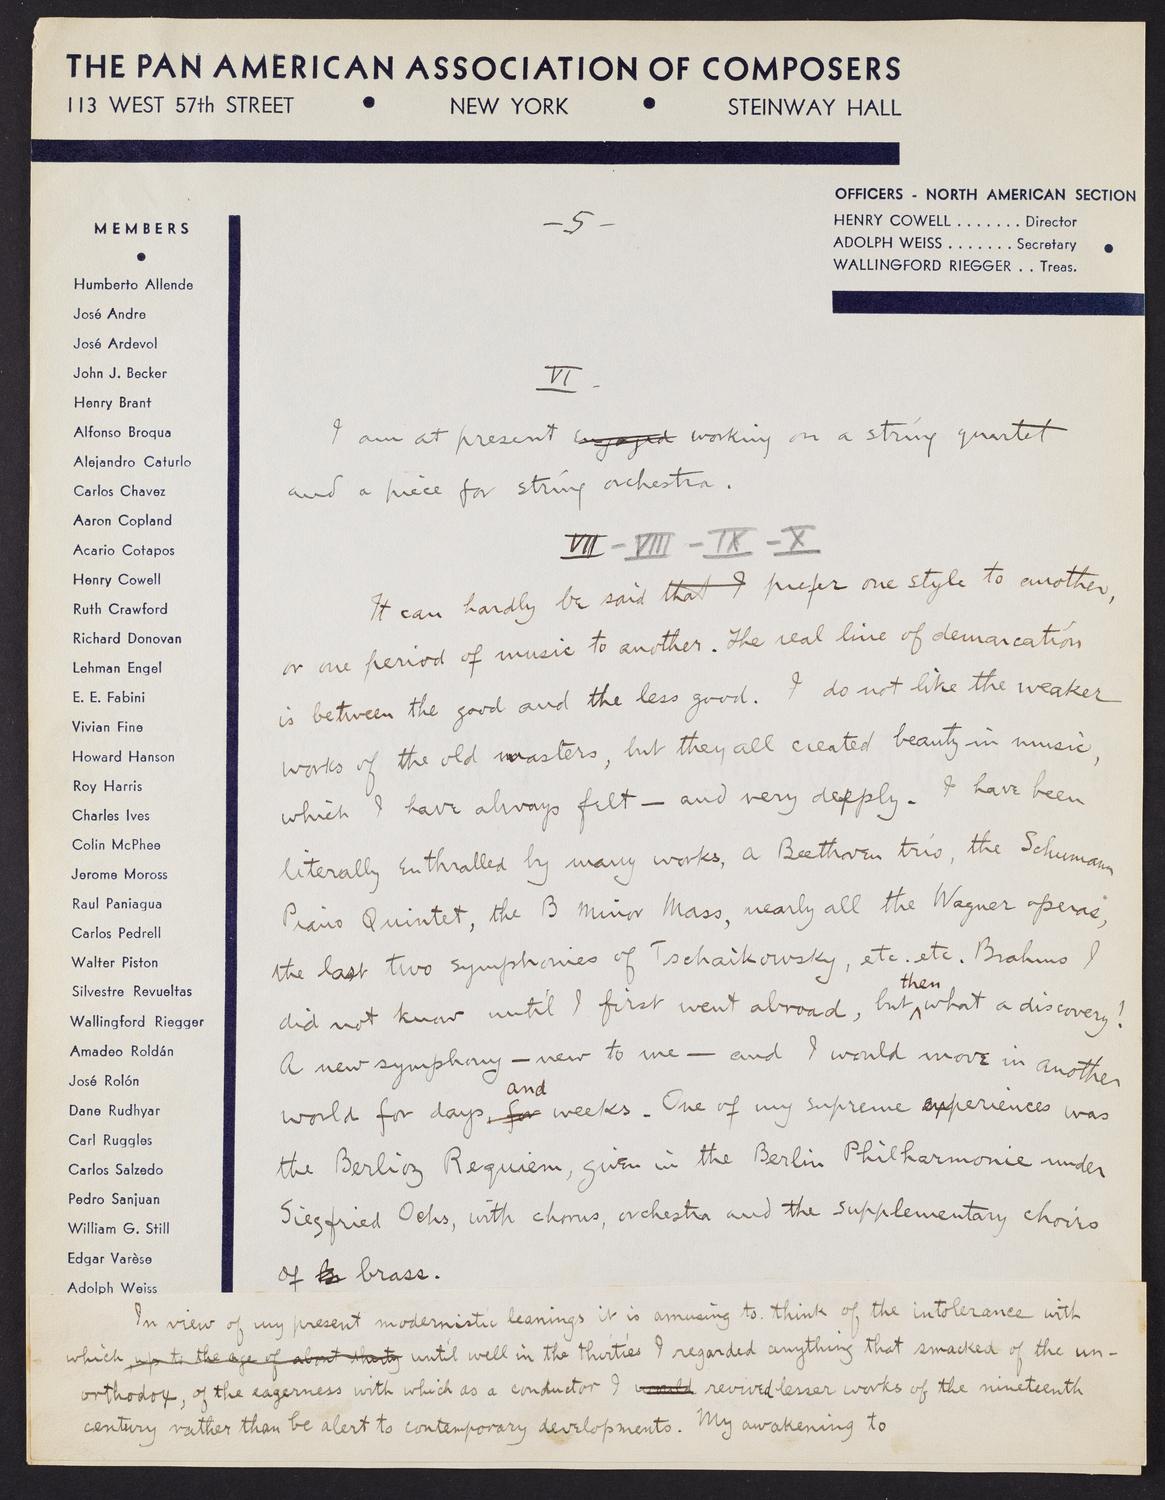 THE PAN AMERICAN ASSOCIATION OF COMPOSERS
113 WEST 57th STREET • NEW YORK • STEINWAY HALL
OFFICERS - NORTH AMERICAN SECTION
HENRY COWELL . . . . . . . Director
ADOLPH WEISS . . . . . . . Secretary
WALLINGFORD RIEGGER . . Treas.
MEMBERS
Humberto Allende
José Andre
José Ardevol
John J. Becker
Henry Brant
Alfonso Broqua
Alejandro Caturlo
Carlos Chavez
Aaron Copland
Acario Cotapos
Henry Cowell
Ruth Crawford
Richard Donovan
Lehman Engel
E. E. Fabini
Vivian Fine
Howard Hanson
Roy Harris
Charles Ives
Colin McPhee
Jerome Moross
Raul Paniagua
Carlos Pedrell
Walter Piston
Silvestre Revueltas
Wallingford Riegger
Amadeo Roldán
José Rolón
Dane Rudhyar
Carl Ruggles
Carlos Salzedo
Pedro Sanjuan
William G. Still
Edgar Varèse
Adolph Weiss
-5-
VI
I am at present engaged working on a string quartet
and a piece for string orchestra.
VII - VIII - IX - X
It can hardly be said that I prefer one style to another,
or one period of music to another. The real line of demarcation
is between the good and the less good. I do not like the weaker
works of the old masters, but they all created beauty in music,
which I have always felt — and very deeply. I have been
literally enthralled by many works, a Beethoven trio, the Schumann
Piano Quintet, the B Minor Mass, nearly all the Wagner operas,
the last two symphonies of Tschaikowsky, etc. etc. Brahms I
did not know until I first went abroad, but then what a discovery!
A new symphony — new to me — and I would move in another
world for days, for and weeks. One of my supreme experiences was
the Berlioz Requiem, given in the Berlin Philharmonie under
Siegfried Ochs, with chorus, orchestra and the supplementary choirs
of brass.
In view of my present modernistic leanings it is amusing to think of the intolerance with
which up to the age of about thirty until well in the thirties I regarded anything that smacked of the un-
orthodox, of the eagerness with which as a conductor I would revived lesser works of the nineteenth
century rather than be alert to contemporary developments. My awakening to